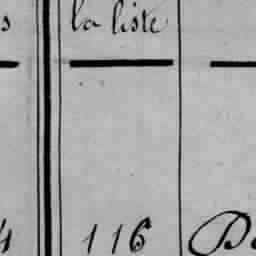 la liste
116